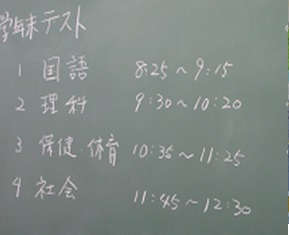 学年末テスト
1 国語 8:25～9:15
2 理科 9:30～10:20
3 保健・体育 10:35～11:25
4 社会 11:45～12:30